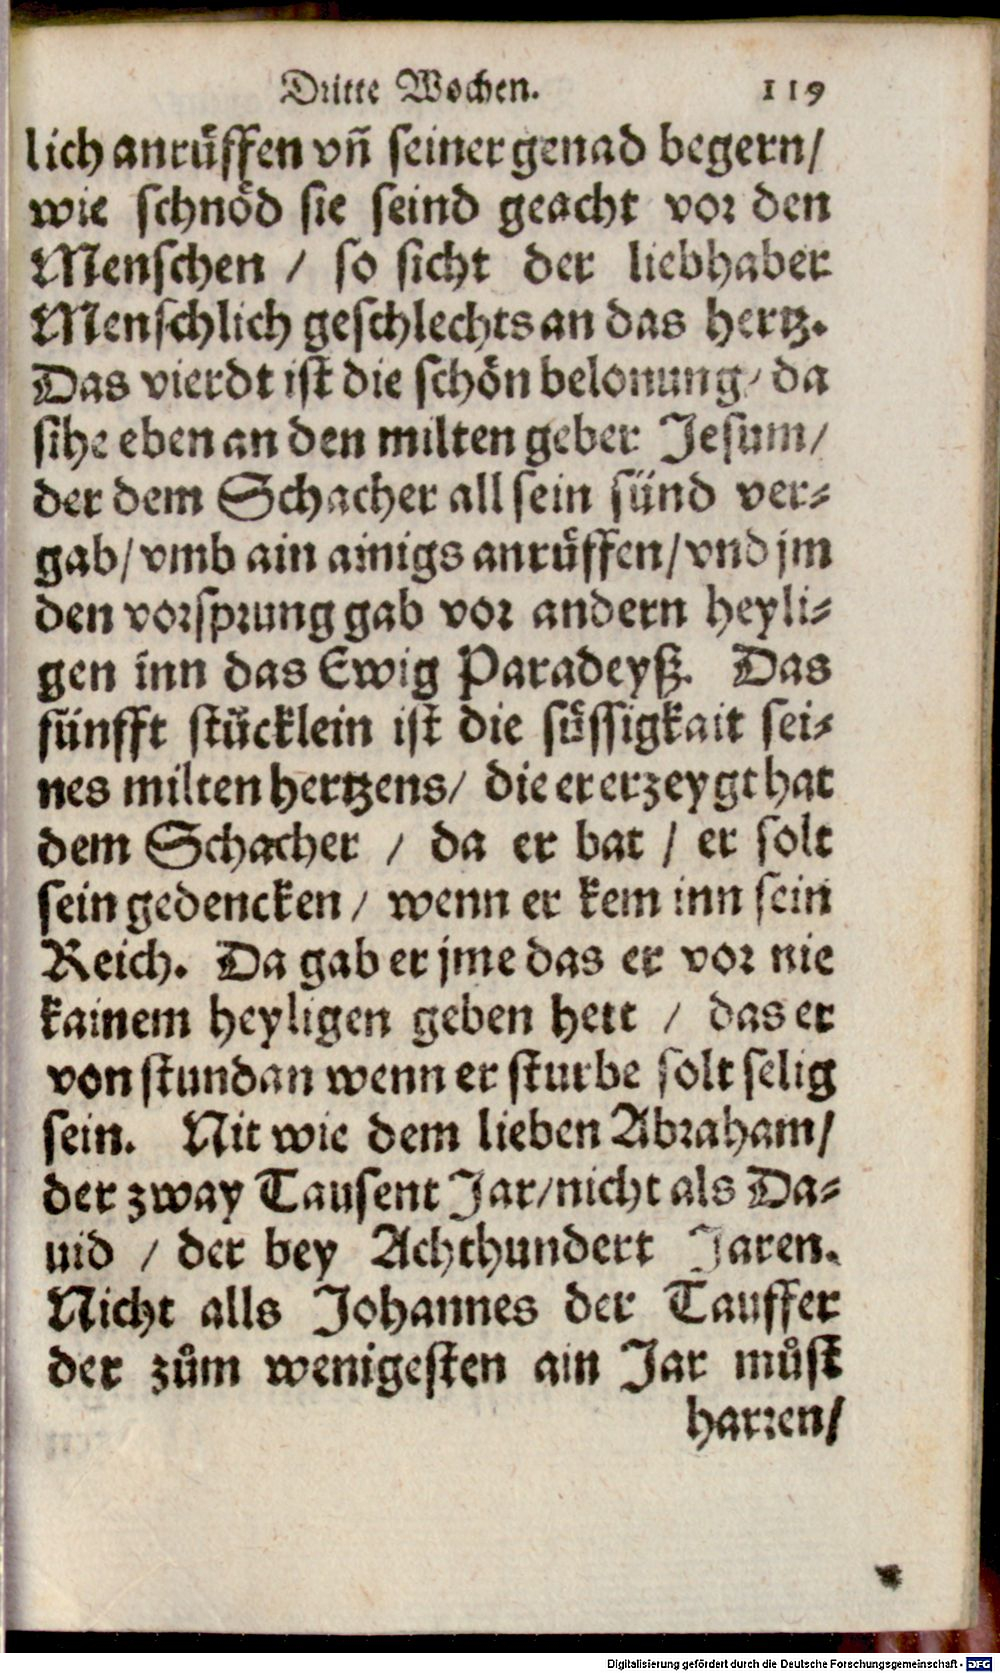 Dritte Wochen. 119
lich anrüffen vñ seiner genad begern/
wie schnöd sie seind geacht vor den
Menschen / so sicht der liebhaber
Menschlich geschlechts an das hertz.
Das vierdt ist die schön belonung/ da
sihe eben an den milten geber Jesum/
der dem Schacher all sein sünd ver-
gab/ vmb ain ainigs anrüffen/ vnd jm
den vorsprung gab vor andern heyli-
gen inn das Ewig Paradeyß. Das
fünfft stücklein ist die süssigkait sei-
nes milten hertzens/ die er erzeygt hat
dem Schacher / da er bat / er solt
sein gedencken / wenn er kem inn sein
Reich. Da gab er jme das er vor nie
kainem heyligen geben hett / das er
von stundan wenn er sturbe solt selig
sein. Nit wie dem lieben Abraham/
der zway Tausent Jar/ nicht als Da-
uid / der bey Achthundert Jaren.
Nicht alls Johannes der Tauffer
der zům wenigesten ain Jar můst
harren/
Digitalisierung gefördert durch die Deutsche Forschungsgemeinschaft - DFG